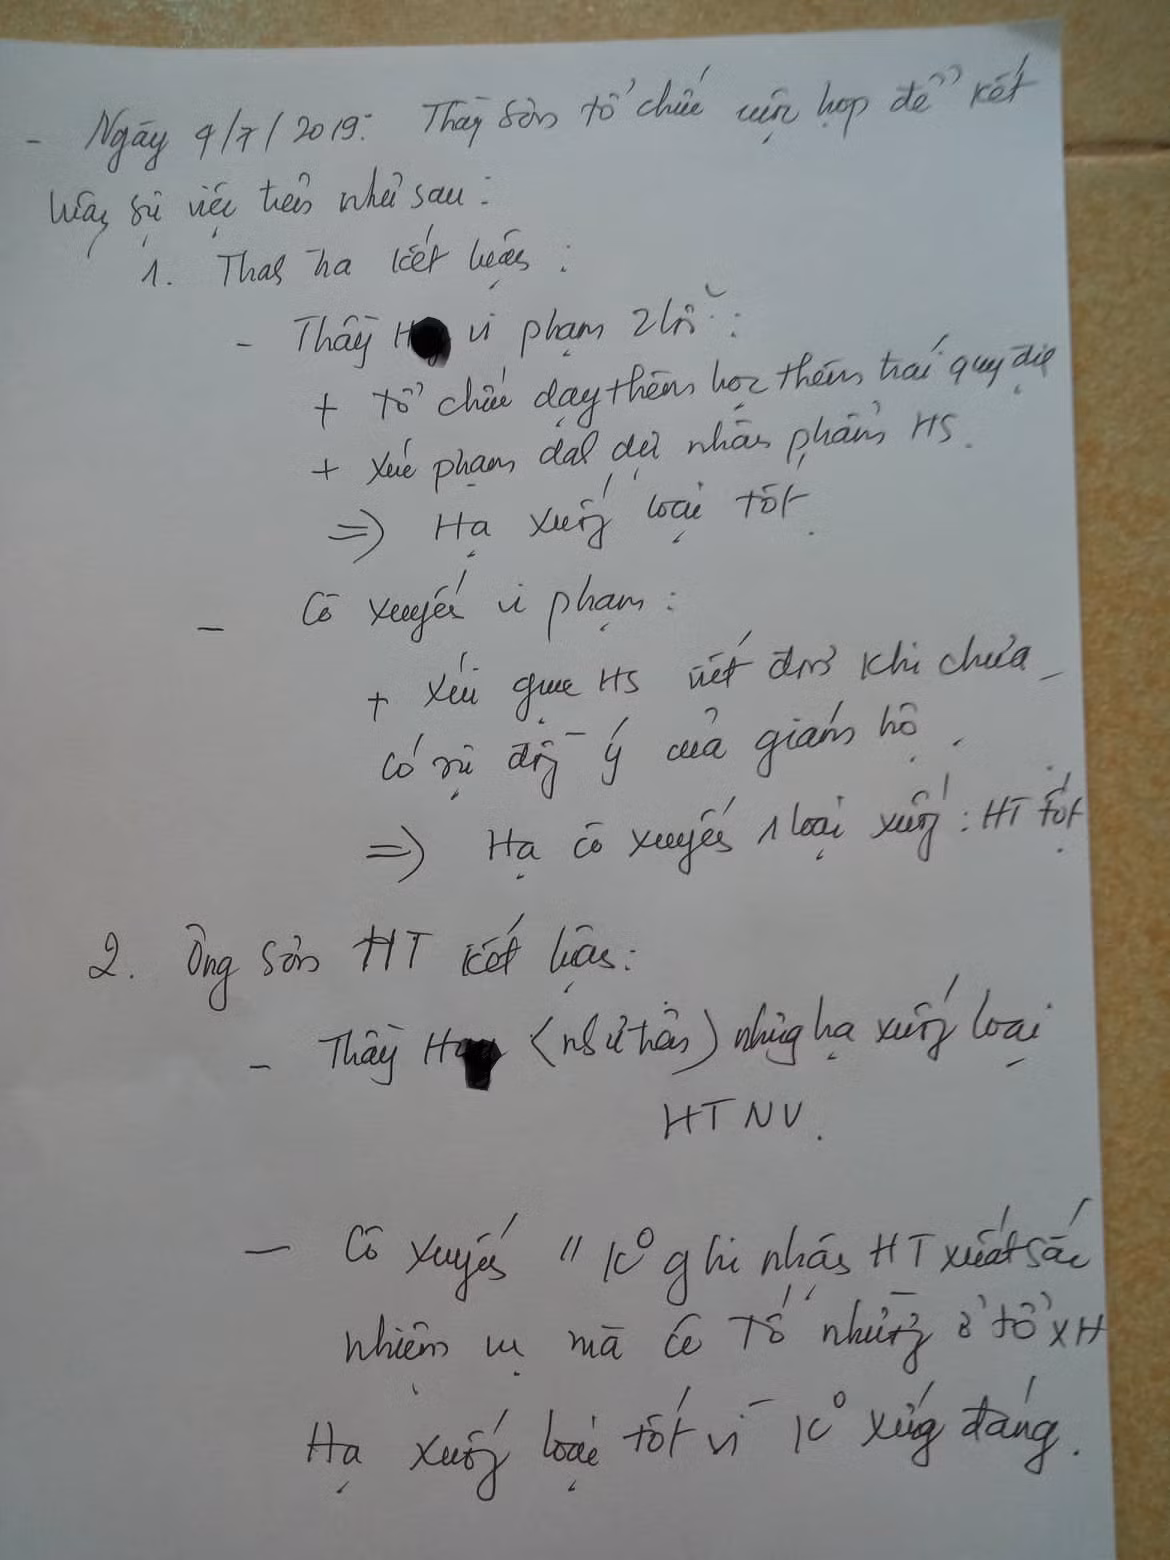 - Ngày 9/7/2019: Thầy Sơn tổ chức cuộc họp để kết
luận sự việc trên như sau:
1. Thah tra kết luận:
- Thầy H vi phạm 2 lỗi:
+ Tổ chức dạy thêm học thêm trái quy định
+ Xúc phạm dah dự nhân phẩm HS.
=> Hạ xuống loại tốt.
- Cô Xuyến vi phạm:
+ Xúi giục HS viết đơn khi chưa
có sự đồng ý của giám hộ.
=> Hạ cô Xuyến 1 loại xuống: HT tốt
2. Ông Sơn HT kết luận:
- Thầy H (như trên) nhưng hạ xuống loại
HTNV.
- Cô Xuyến " K° ghi nhận HT xuất sắc
nhiệm vụ mà cô Tố nhưng ở tổ XH
Hạ xuống loại tốt vì K° xứng đáng.